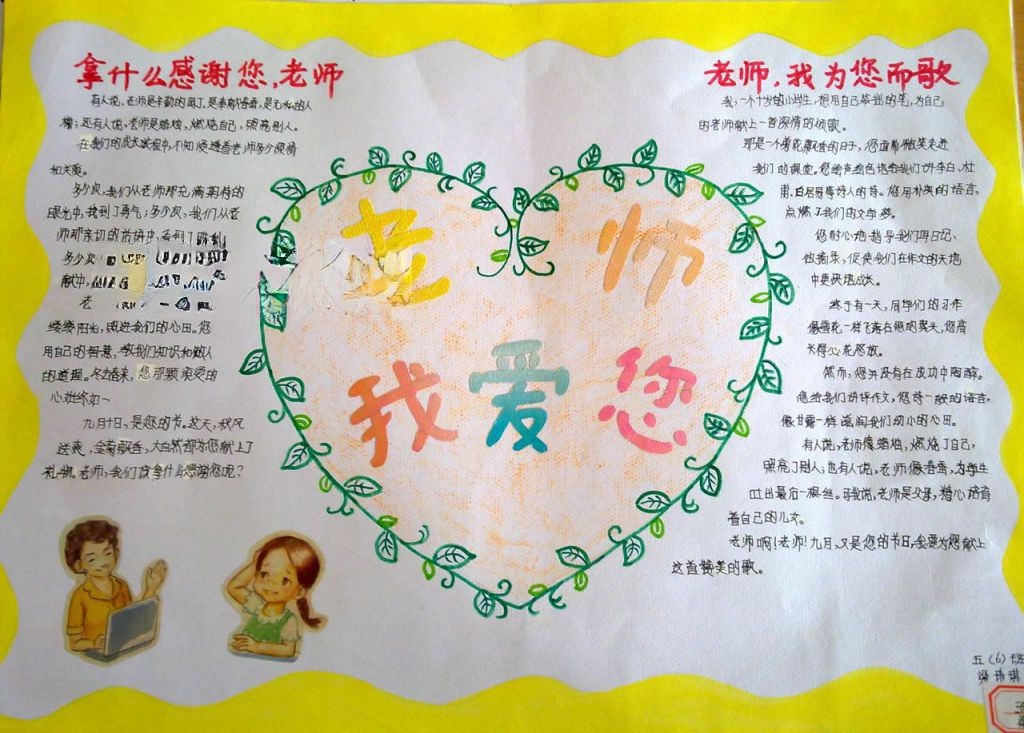 拿什么感谢您,老师
有人说,老师是辛勤的园丁,是奉献得者,是无私的人
梯;还有人说,老师是蜡烛、燃烧自己,照亮别人。
在我们的成长旅程中,不知浸透着老师多少深情
和关爱。
多少次,我们从老师那充满期待的
眼光中,找到了勇气;多少次,我们从老
师那亲切的话语中,
多少次
献中,
老
缕缕阳光,照进我们的心田。您
用自己的智慧,教我们知识和做人
的道理。冬去春来,您那颗滚烫的
心始终如一
九月十日,是您的节。这天,秋风
送爽,金菊飘香,大自然都为您献上了
礼、老师,我们该拿什么感谢您呢?
老师
我爱您
老师,我为您而歌
我,一个十岁的小学生,想用自己笨拙的笔,为自己
的老师献上一首深情的颂歌。
那是一个菊花飘香的日子,您迈着微笑走进
我们的课堂。您绘声绘色地给我们讲李白、杜
甫、白居易等诗人的诗。您用朴实的语言,
点燃了我们的文学梦。
您耐心地指导我们写日记、
做摘录,促使我们在作文的天地
中更快地成长。
终于有一天,同学们的习作
像雪花一样飞落在您的案头,您高
兴得心花怒放。
然而,您并没有在成功中陶醉。
您给我们讲评作文,您诗一般的语言,
像甘露一样滋润我们幼小的心田。
有人说,老师像蜡烛,燃烧了自己,
照亮了别人;也有人说,老师像春蚕,为学生
吐出最后一根丝。可我说,老师是父母,精心培育
着自己的儿女。
老师啊!老师!九月,又是您的节日,我要为您献上
这首赞美的歌。
五(6)班